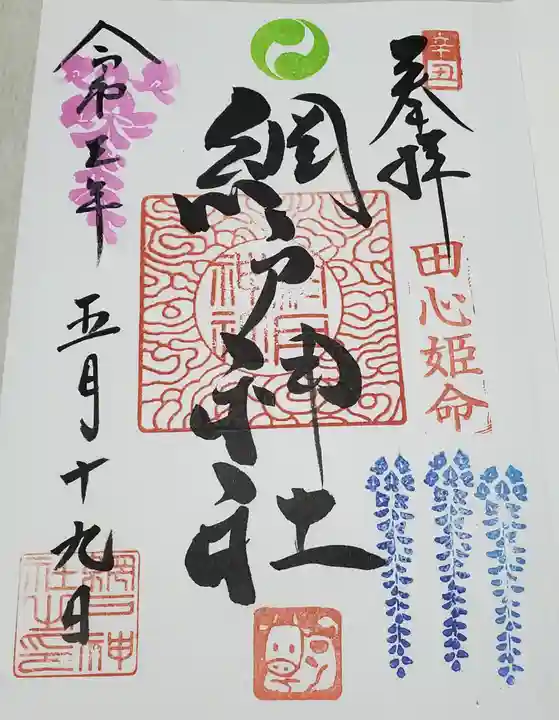 辛丑
奉拝
田心姫命
網戸神社
網戸神社
令和三年
五月十九日
網戸神社之印